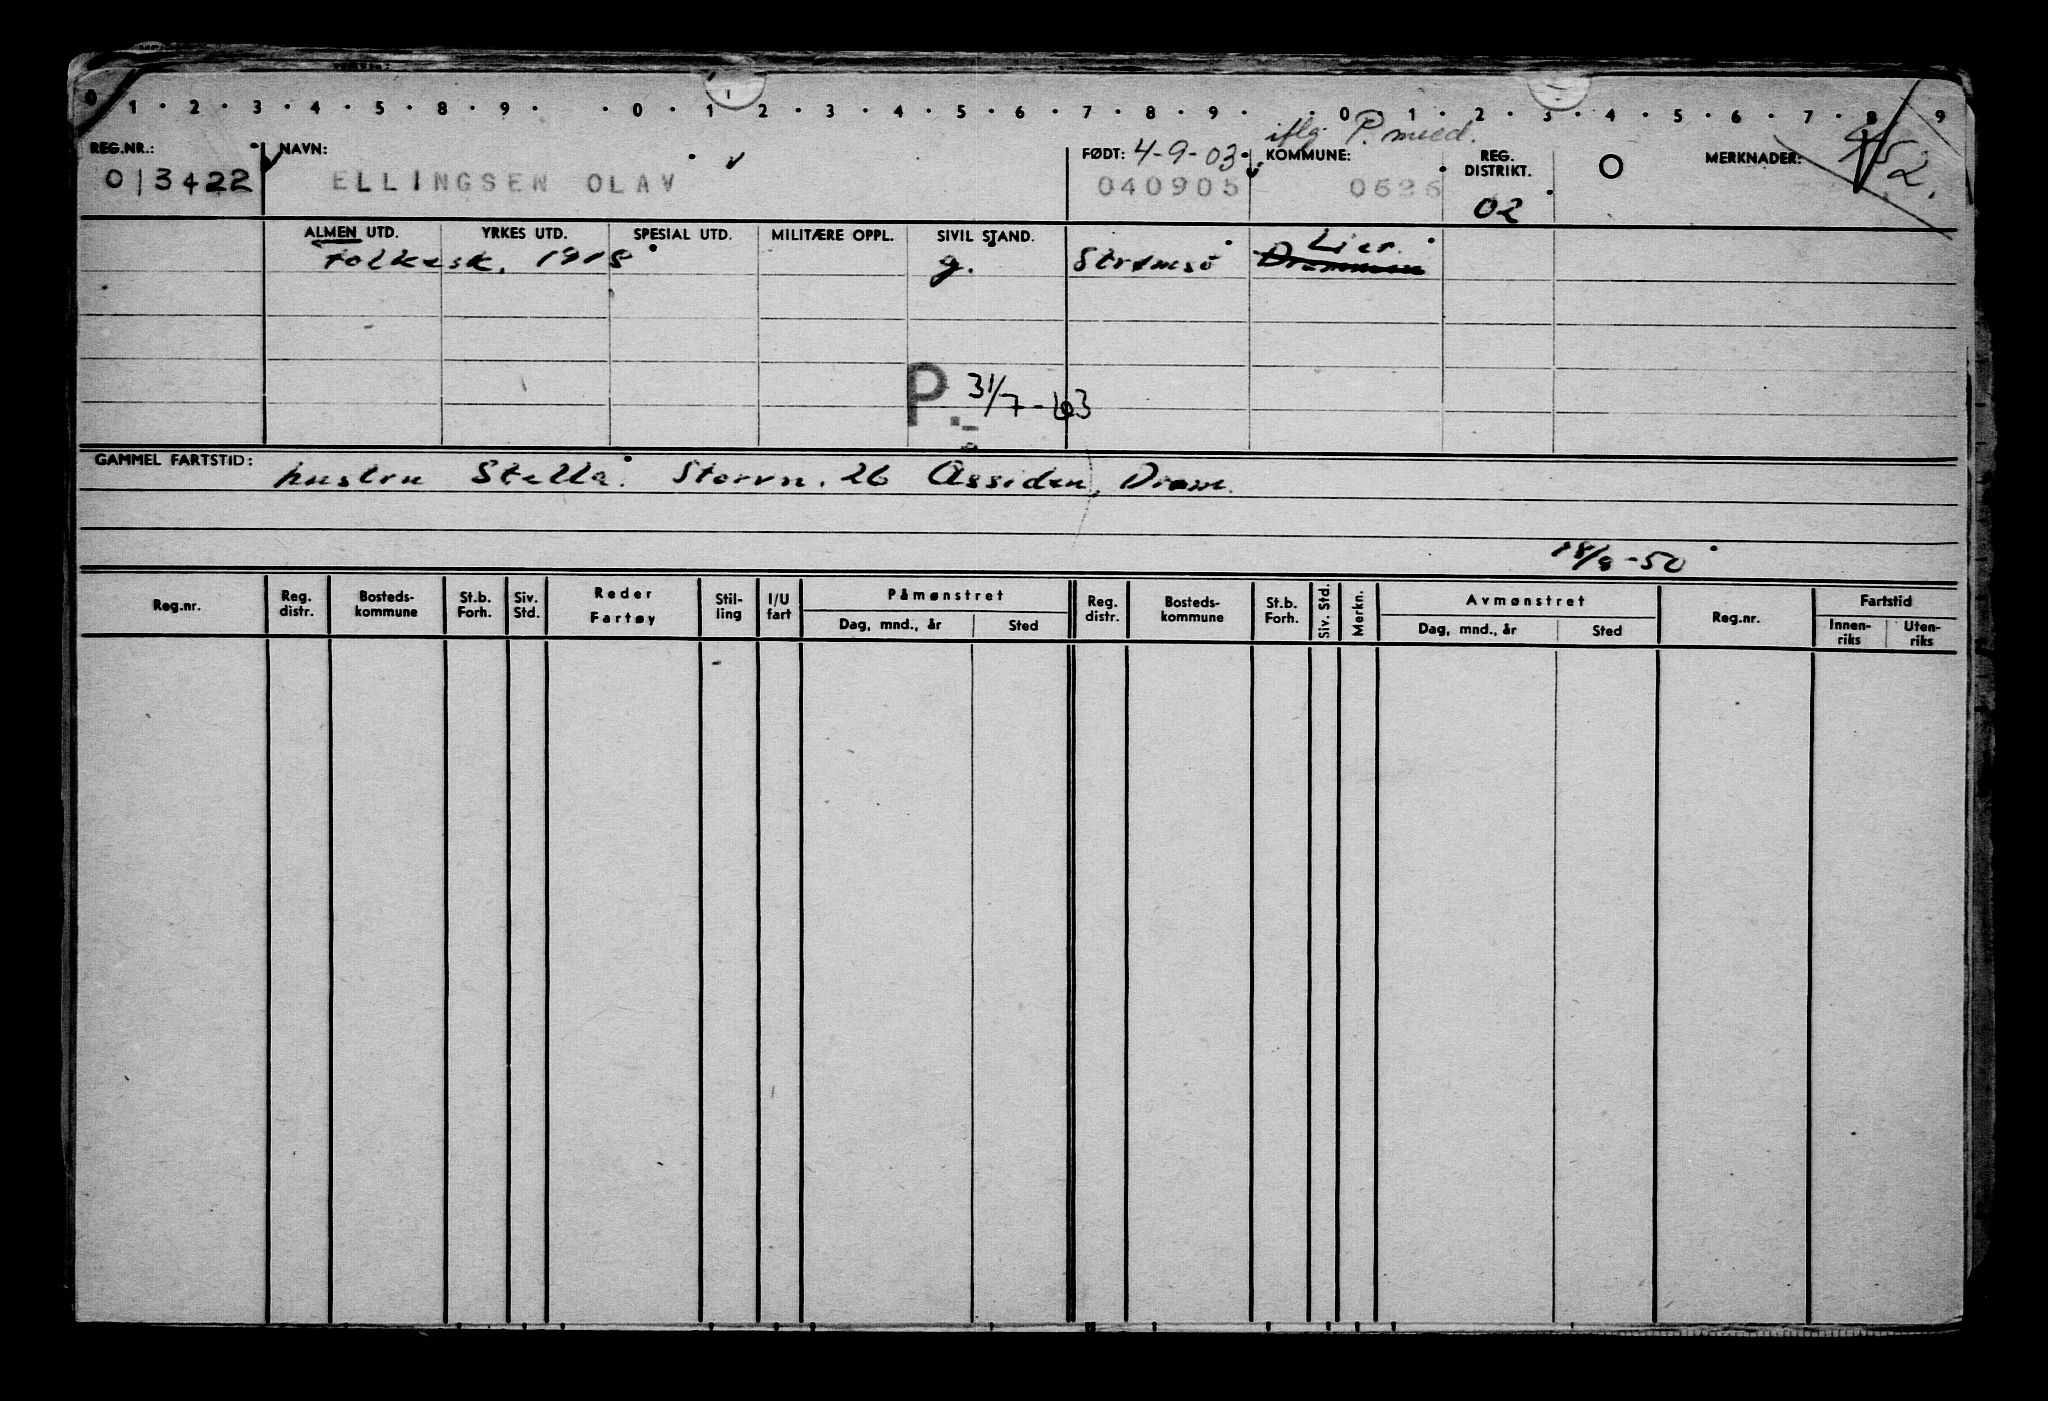 0 1 · 2 · 3 · 4 · 5 · 8 · 9 · · 0 · 1 · 2 · 3 · 4 · 5 · 6 · 7 · 8 · 9 · · 0 · 1 · 2 · 3 · 4 · 5 · 6 · 7 · 8 · 9
iflg. P. med.
REG.NR.: NAVN: FØDT: 4-9-03 KOMMUNE: REG. DISTRIKT. O MERKNADER: 52.
013422 ELLINGSEN OLAV 040905 0626 02
ALMEN UTD. YRKES UTD. SPESIAL UTD. MILITÆRE OPPL. SIVIL STAND.
Lier.
Folkesk. 1918 g. Strømsø Drammen
P. 31/7-63
GAMMEL FARTSTID: hustru Stella. Storvn. 26 Assiden, Dram.
18/8-50
Reg.nr. Reg. distr. Bosteds-kommune St.b. Forh. Siv. Std. Reder Fartøy Stil-ling I/U fart Påmønstret Reg. distr. Bosteds-kommune St.b. Forh. Siv. Std. Merkn. Avmønstret Reg.nr. Fartstid
Dag, mnd., år Sted Dag, mnd., år Sted Innen-riks Uten-riks